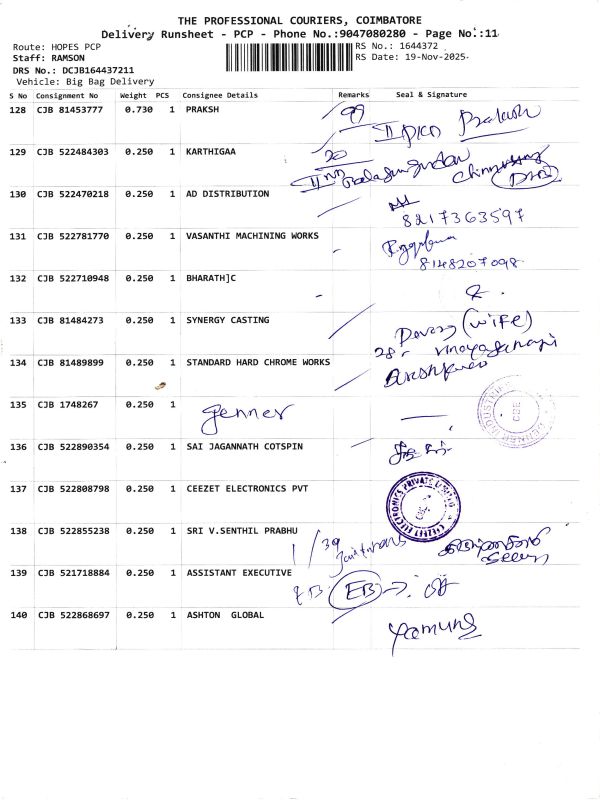 THE PROFESSIONAL COURIERS, COIMBATORE
Delivery Runsheet - PCP - Phone No.:9047080280 - Page No.:11
Route: HOPES PCP RS No.: 1644372
Staff: RAMSON RS Date: 19-Nov-2025
DRS No.: DCJB164437211
Vehicle: Big Bag Delivery
S No Consignment No Weight PCS Consignee Details Remarks Seal & Signature
128 CJB 81453777 0.730 1 PRAKSH 99
Prakash
129 CJB 522484303 0.250 1 KARTHIGAA 20
130 CJB 522470218 0.250 1 AD DISTRIBUTION
8217363597
131 CJB 522781770 0.250 1 VASANTHI MACHINING WORKS
8148207098
132 CJB 522710948 0.250 1 BHARATH]C
133 CJB 81484273 0.250 1 SYNERGY CASTING
(wife)
28
134 CJB 81489899 0.250 1 STANDARD HARD CHROME WORKS
135 CJB 1748267 0.250 1 Jenner
136 CJB 522890354 0.250 1 SAI JAGANNATH COTSPIN
137 CJB 522808798 0.250 1 CEEZET ELECTRONICS PVT
CEEZET ELECTRONICS PRIVATE LIMITED
138 CJB 522855238 0.250 1 SRI V.SENTHIL PRABHU
139 CJB 521718884 0.250 1 ASSISTANT EXECUTIVE
EB EB
140 CJB 522868697 0.250 1 ASHTON GLOBAL
Yamuna